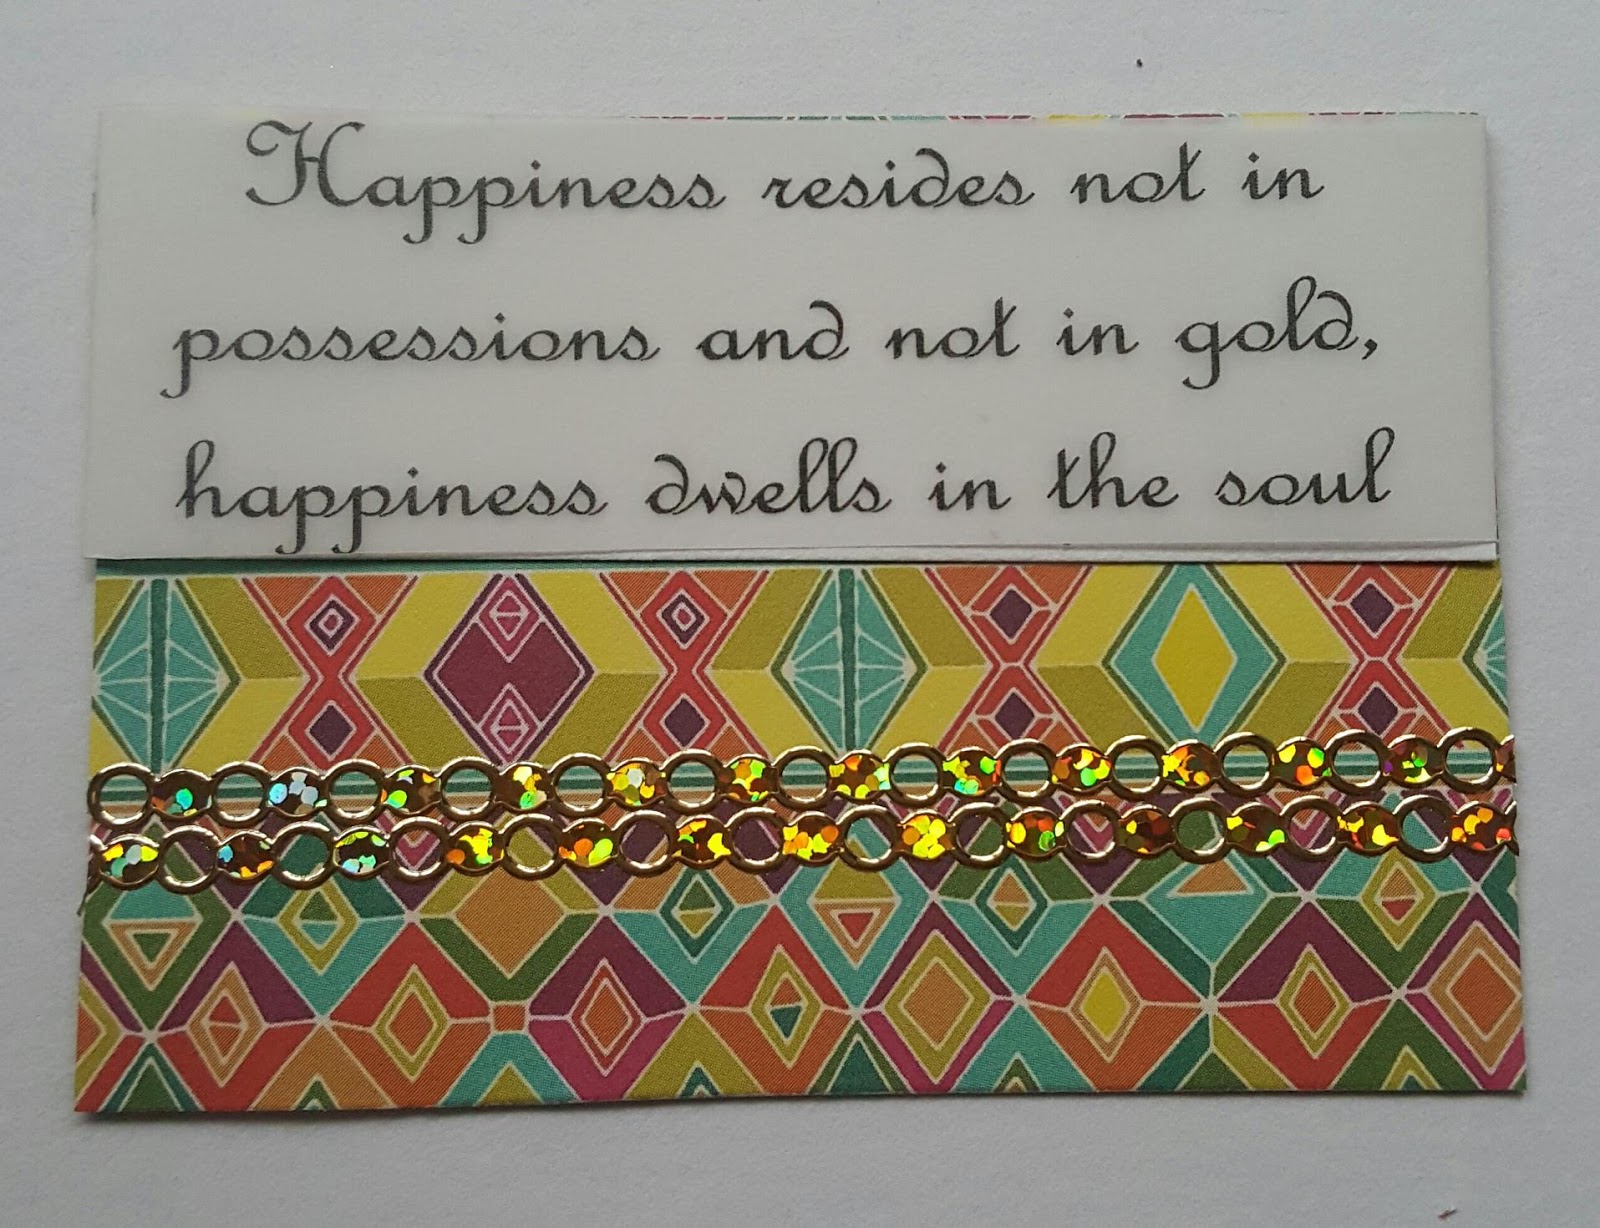 Happiness resides not in
possessions and not in gold,
happiness dwells in the soul